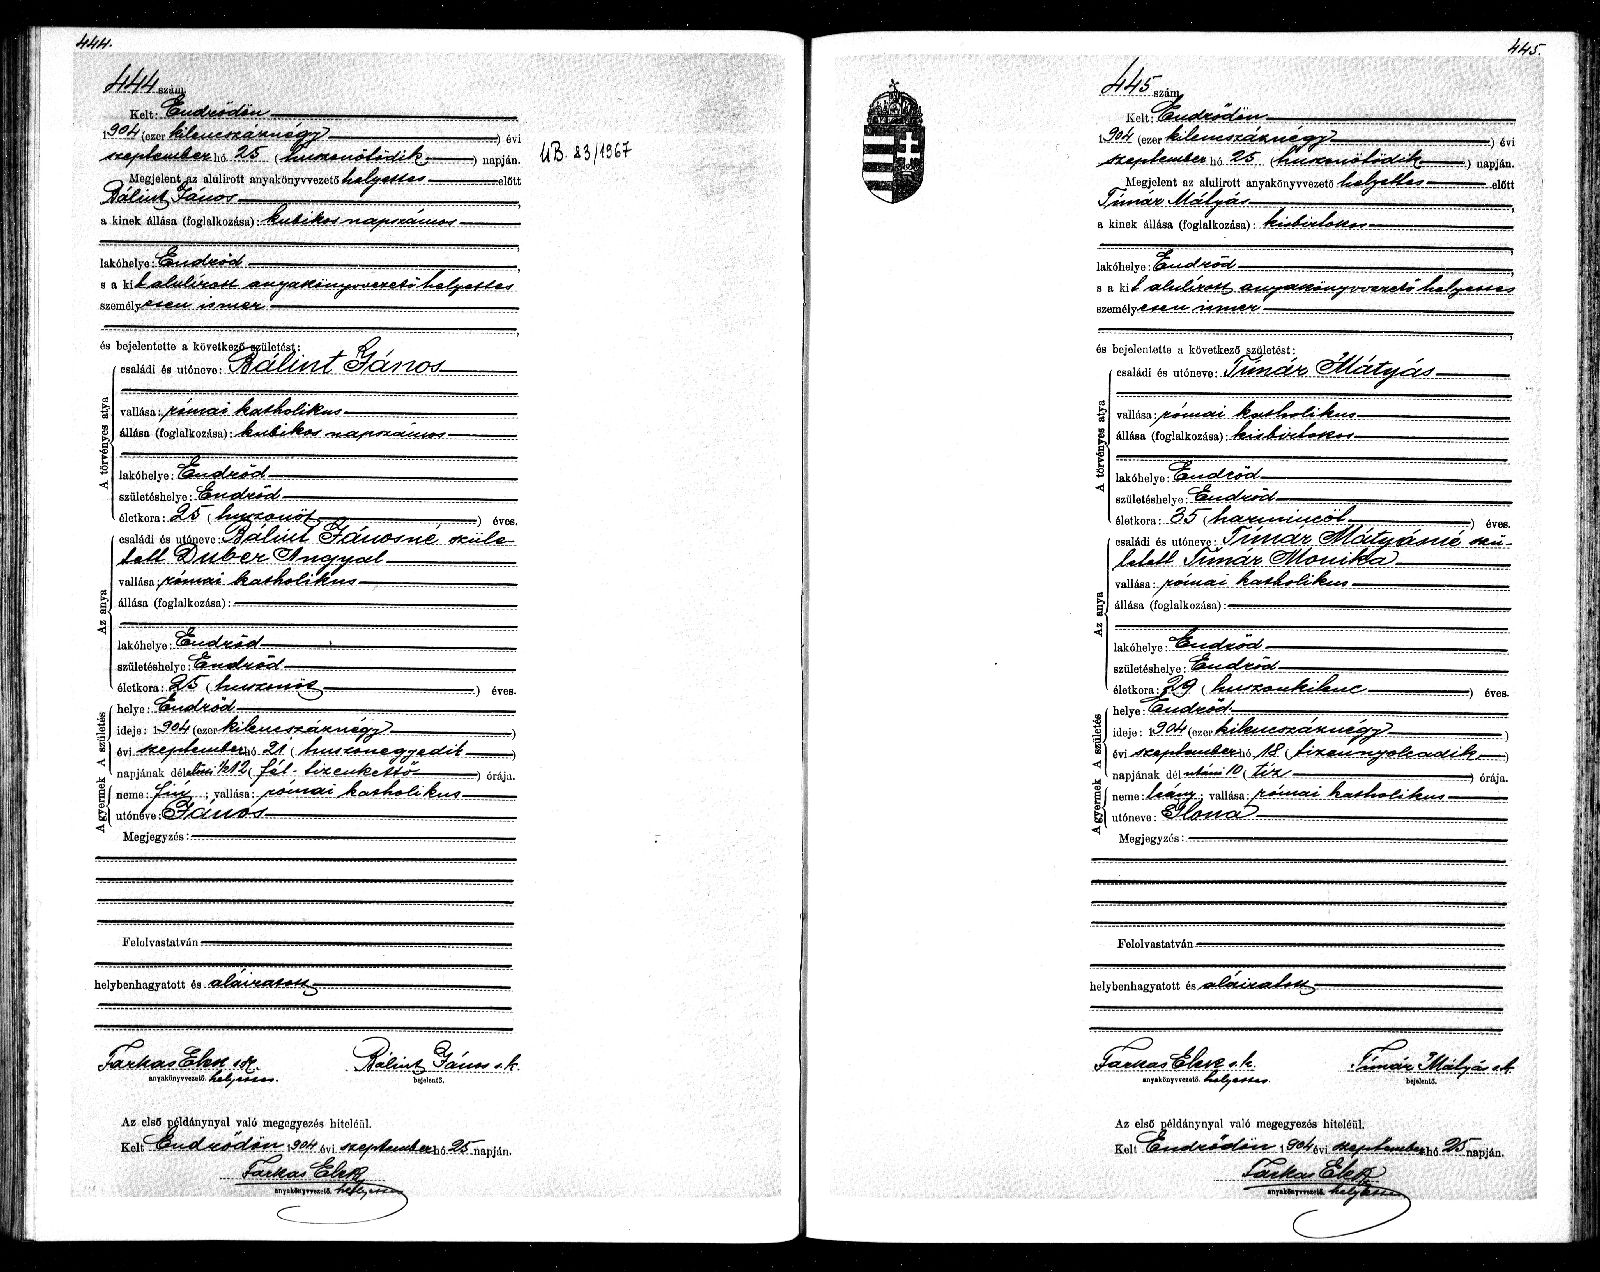 444.
444 szám
Kelt: Endrődön
1904 (ezer kilencszáznégy) évi
szeptember hó 25 (huszonötödik) napján.
UB. 23/1967
Megjelent az alulirott anyakönyvvezető helyettes előtt
Bálint János,
a kinek állása (foglalkozása): kubikos napszámos
lakóhelye: Endrőd,
s a kit alulírott anyakönyvvezető helyettes
személyesen ismer,
és bejelentette a következő születést:
A törvényes atya
családi és utóneve: Bálint János
vallása: római katholikus
állása (foglalkozása): kubikos napszámos
lakóhelye: Endrőd
születéshelye: Endrőd
életkora: 25 (huszonöt) éves.
Az anya
családi és utóneve: Bálint Jánosné szüle-
tett Duber Angyal
vallása: római katholikus
állása (foglalkozása):
lakóhelye: Endrőd
születéshelye: Endrőd
életkora: 25 (huszonöt) éves.
A gyermek A születés
helye: Endrőd
ideje: 1904 (ezer kilencszáznégy)
évi szeptember hó 21 (huszonegyedik)
napjának délelőtti ½12 (fél tizenkettő) órája.
neme: fiú; vallása: római katholikus
utóneve: János
Megjegyzés:
Felolvastatván
helybenhagyatott és aláiratott
Farkas Elek sk. Bálint János s.k.
anyakönyvvezető. helyettes. bejelentő.
Az első példánynyal való megegyezés hiteléül.
Kelt Endrődön 1904 évi szeptember hó 25 napján.
Farkas Elek
anyakönyvvezető. helyettes
445.
445 szám
Kelt: Endrődön
1904 (ezer kilencszáznégy) évi
szeptember hó 25 (huszonötödik) napján.
Megjelent az alulirott anyakönyvvezető helyettes előtt
Tímár Mátyás,
a kinek állása (foglalkozása): kisbirtokos
lakóhelye: Endrőd,
s a kit alulírott anyakönyvvezető helyettes
személyesen ismer,
és bejelentette a következő születést:
A törvényes atya
családi és utóneve: Tímár Mátyás
vallása: római katholikus
állása (foglalkozása): kisbirtokos
lakóhelye: Endrőd
születéshelye: Endrőd
életkora: 35 (harmincöt) éves.
Az anya
családi és utóneve: Tímár Mátyásné szü-
letett Tímár Monika
vallása: római katholikus
állása (foglalkozása):
lakóhelye: Endrőd
születéshelye: Endrőd
életkora: 29 (huszonkilenc) éves.
A gyermek A születés
helye: Endrőd
ideje: 1904 (ezer kilencszáznégy)
évi szeptember hó 18 (tizennyolcadik)
napjának délutáni 10 (tíz) órája.
neme: leány; vallása: római katholikus
utóneve: Ilona
Megjegyzés:
Felolvastatván
helybenhagyatott és aláiratott
Farkas Elek s.k. Tímár Mátyás sk.
anyakönyvvezető. helyettes. bejelentő.
Az első példánynyal való megegyezés hiteléül.
Kelt Endrődön 1904 évi szeptember hó 25 napján.
Farkas Elek
anyakönyvvezető. helyettes